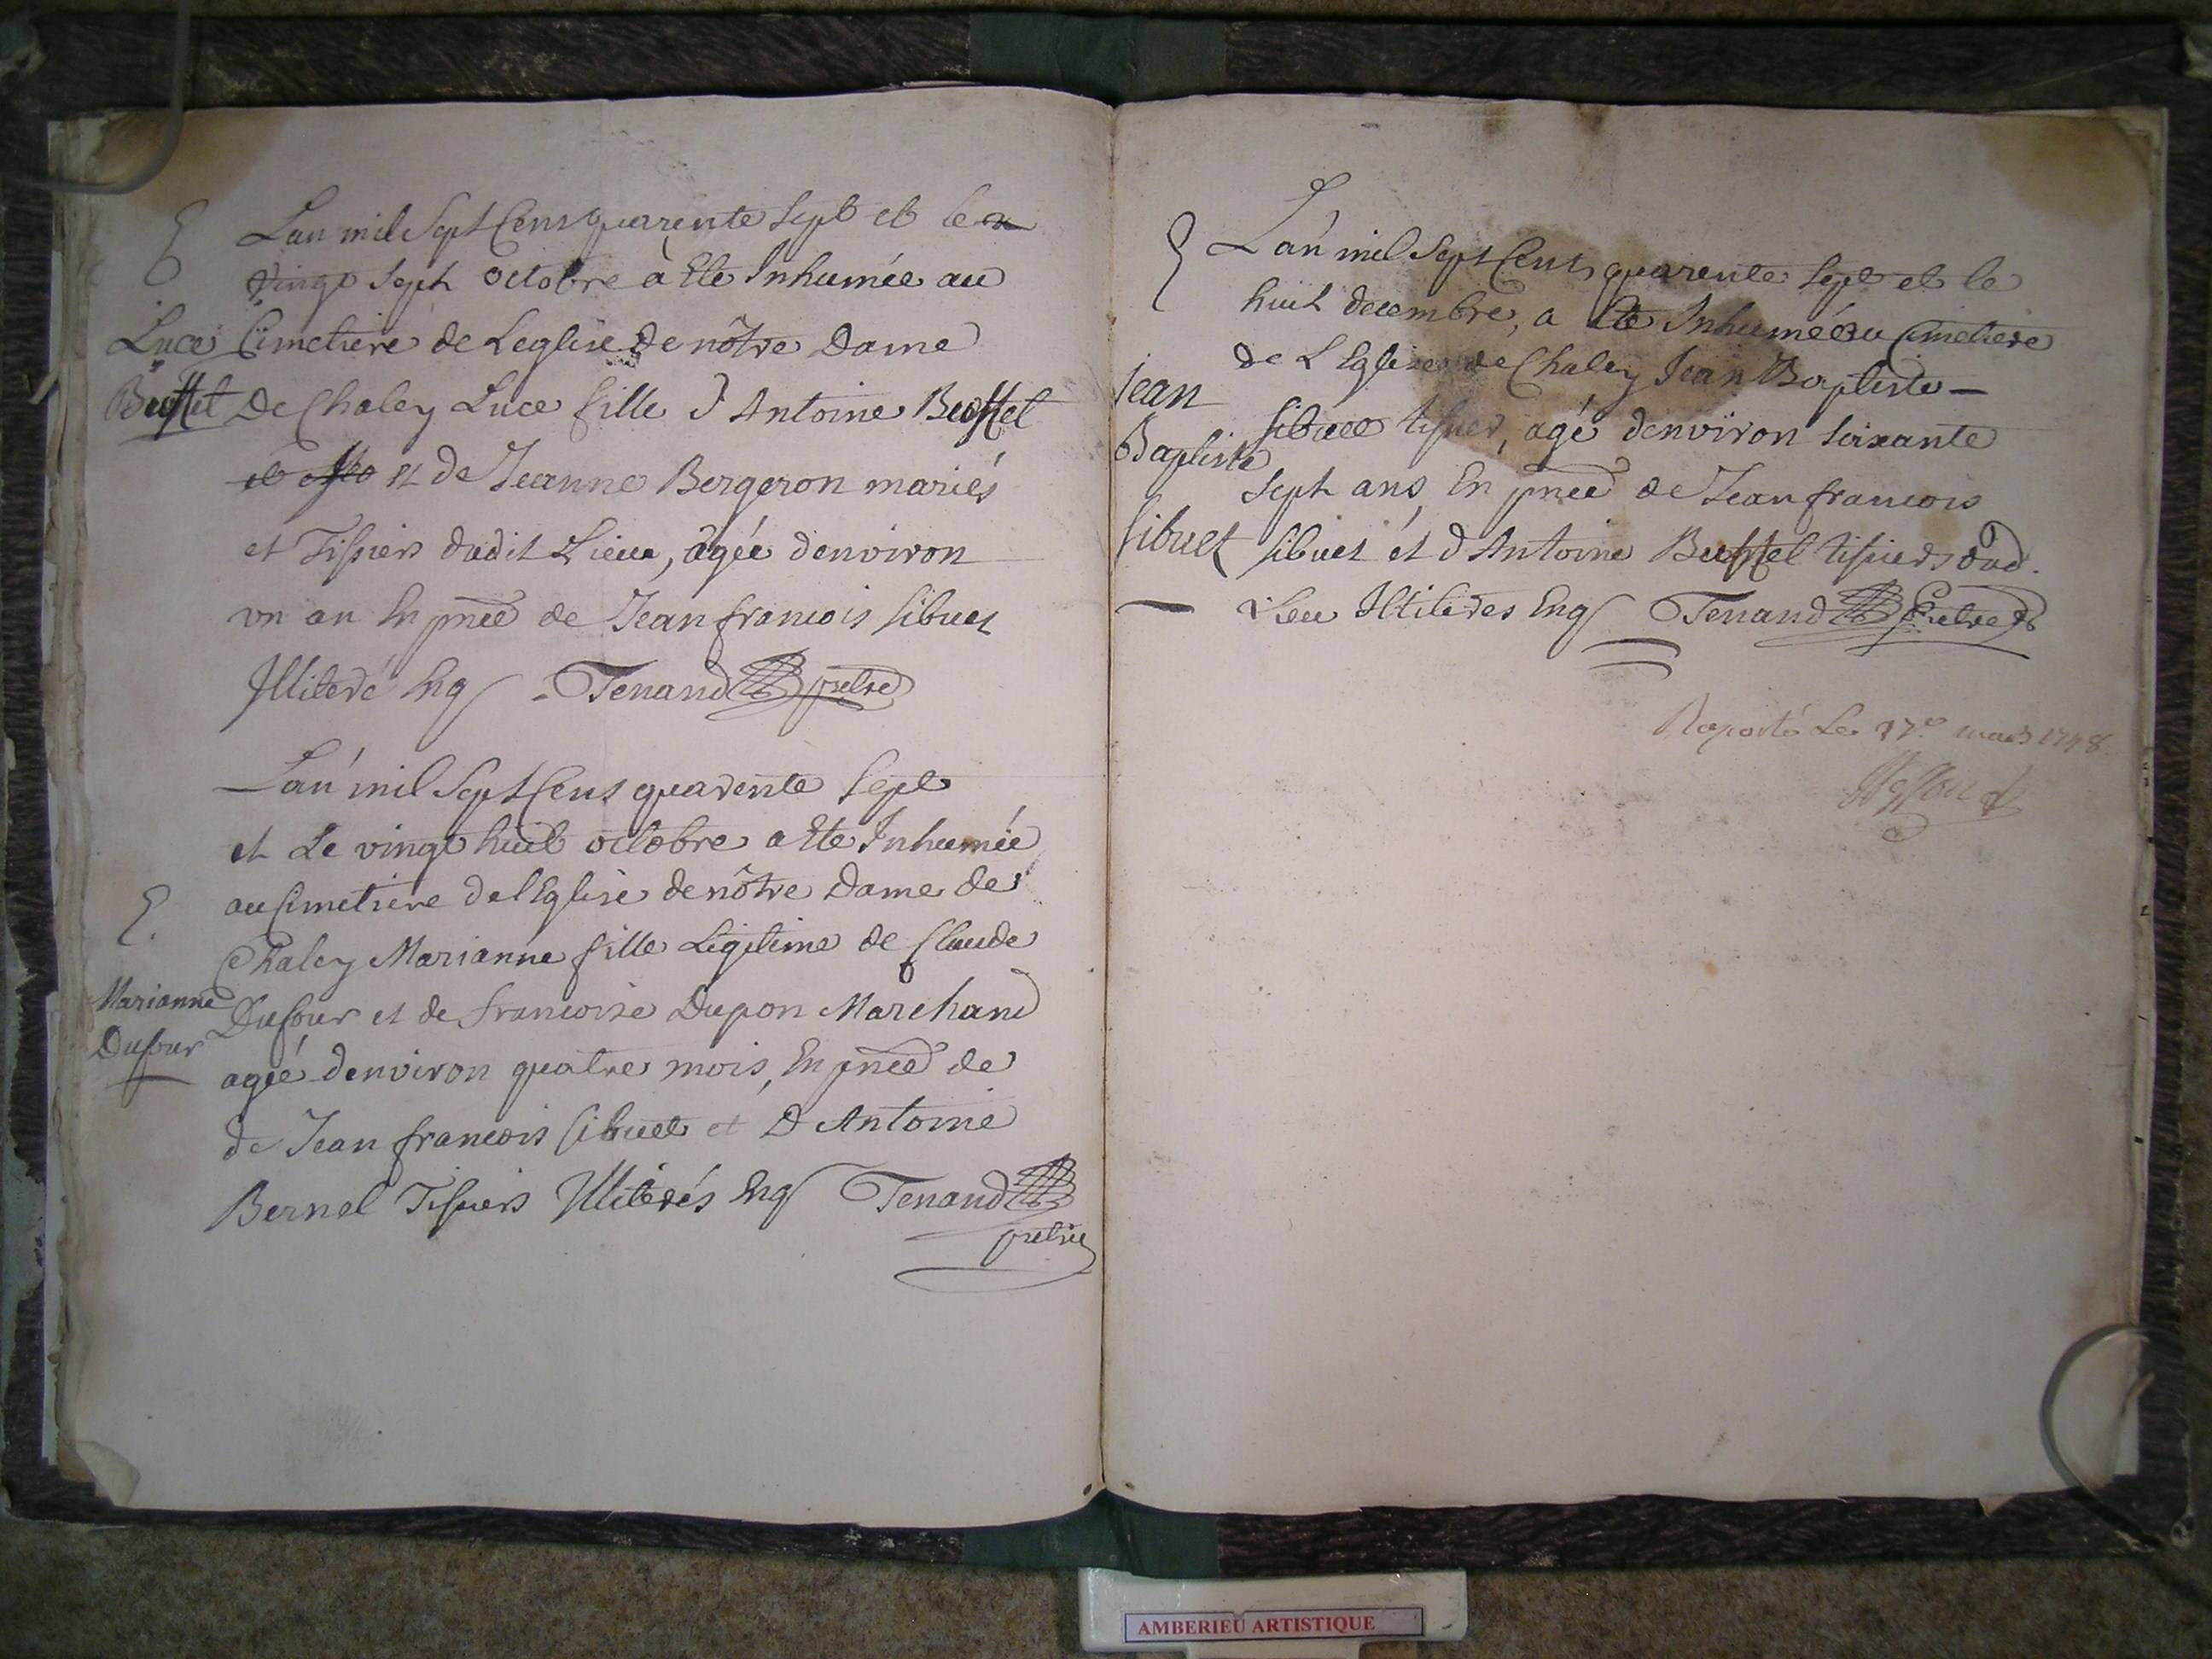 E
Lan mil Sept Cens quarente Sept et le
Vingt Sept Octobre a Ete Inhumée au
Luce
Cimetiere de Leglise de nôtre Dame
Buffet
De Chaley Luce fille d'Antoine Buffet
et de Jeanne Bergeron mariés
et Tissiers dudit Lieu, âgée denviron
vn an En pnce de Jean francois Sibuet
Illiteré Enq Tenand pretre
Lan mil Sept Cens quarente Sept
et Le vingt huit octobre a Ete Inhumée
au Cimetiere de l'Eglise de nôtre Dame de
E.
Chaley Marianne fille Légitime de Claude
Marianne
Dufour et de francoise Dupon Marchand
Dufour
agée denviron quatre mois, En pnce de
de Jean francois Sibuet et D'Antoine
Bernel Tissiers Illiterés Enq Tenand
pretre
Lan mil Sept Cens quarente Sept et le
huit decembre, a Ete Inhumé au Cimetiere
de L'Eglise de Chaley Jean Baptiste
Jean
Sibuet tissier, agé denviron soixante
Baptiste
Sept ans, En pnce de Jean francois
Sibuet
Sibuet et d'Antoine Buffet tissiers dud.
Lieu Illiteres Enq Tenand Pretre
Raporté Le 27e mars 1748
AMBERIEU ARTISTIQUE